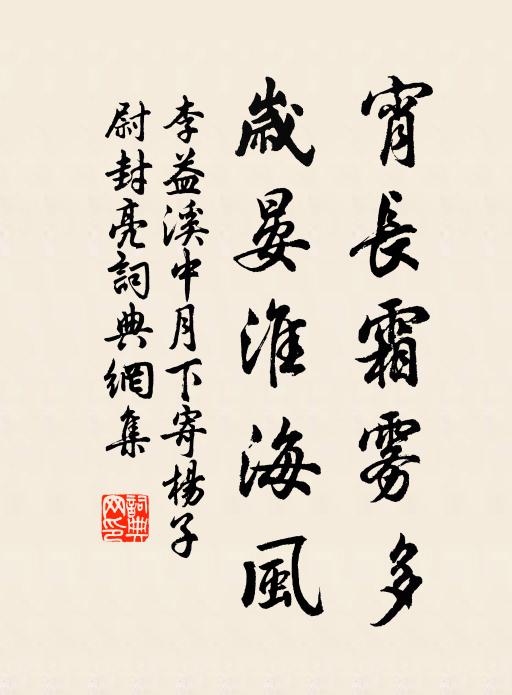 宵長霜霧多
歲晏淮海風
李益溪中月下寄楊子
尉封亮詞典網集
詞典網印